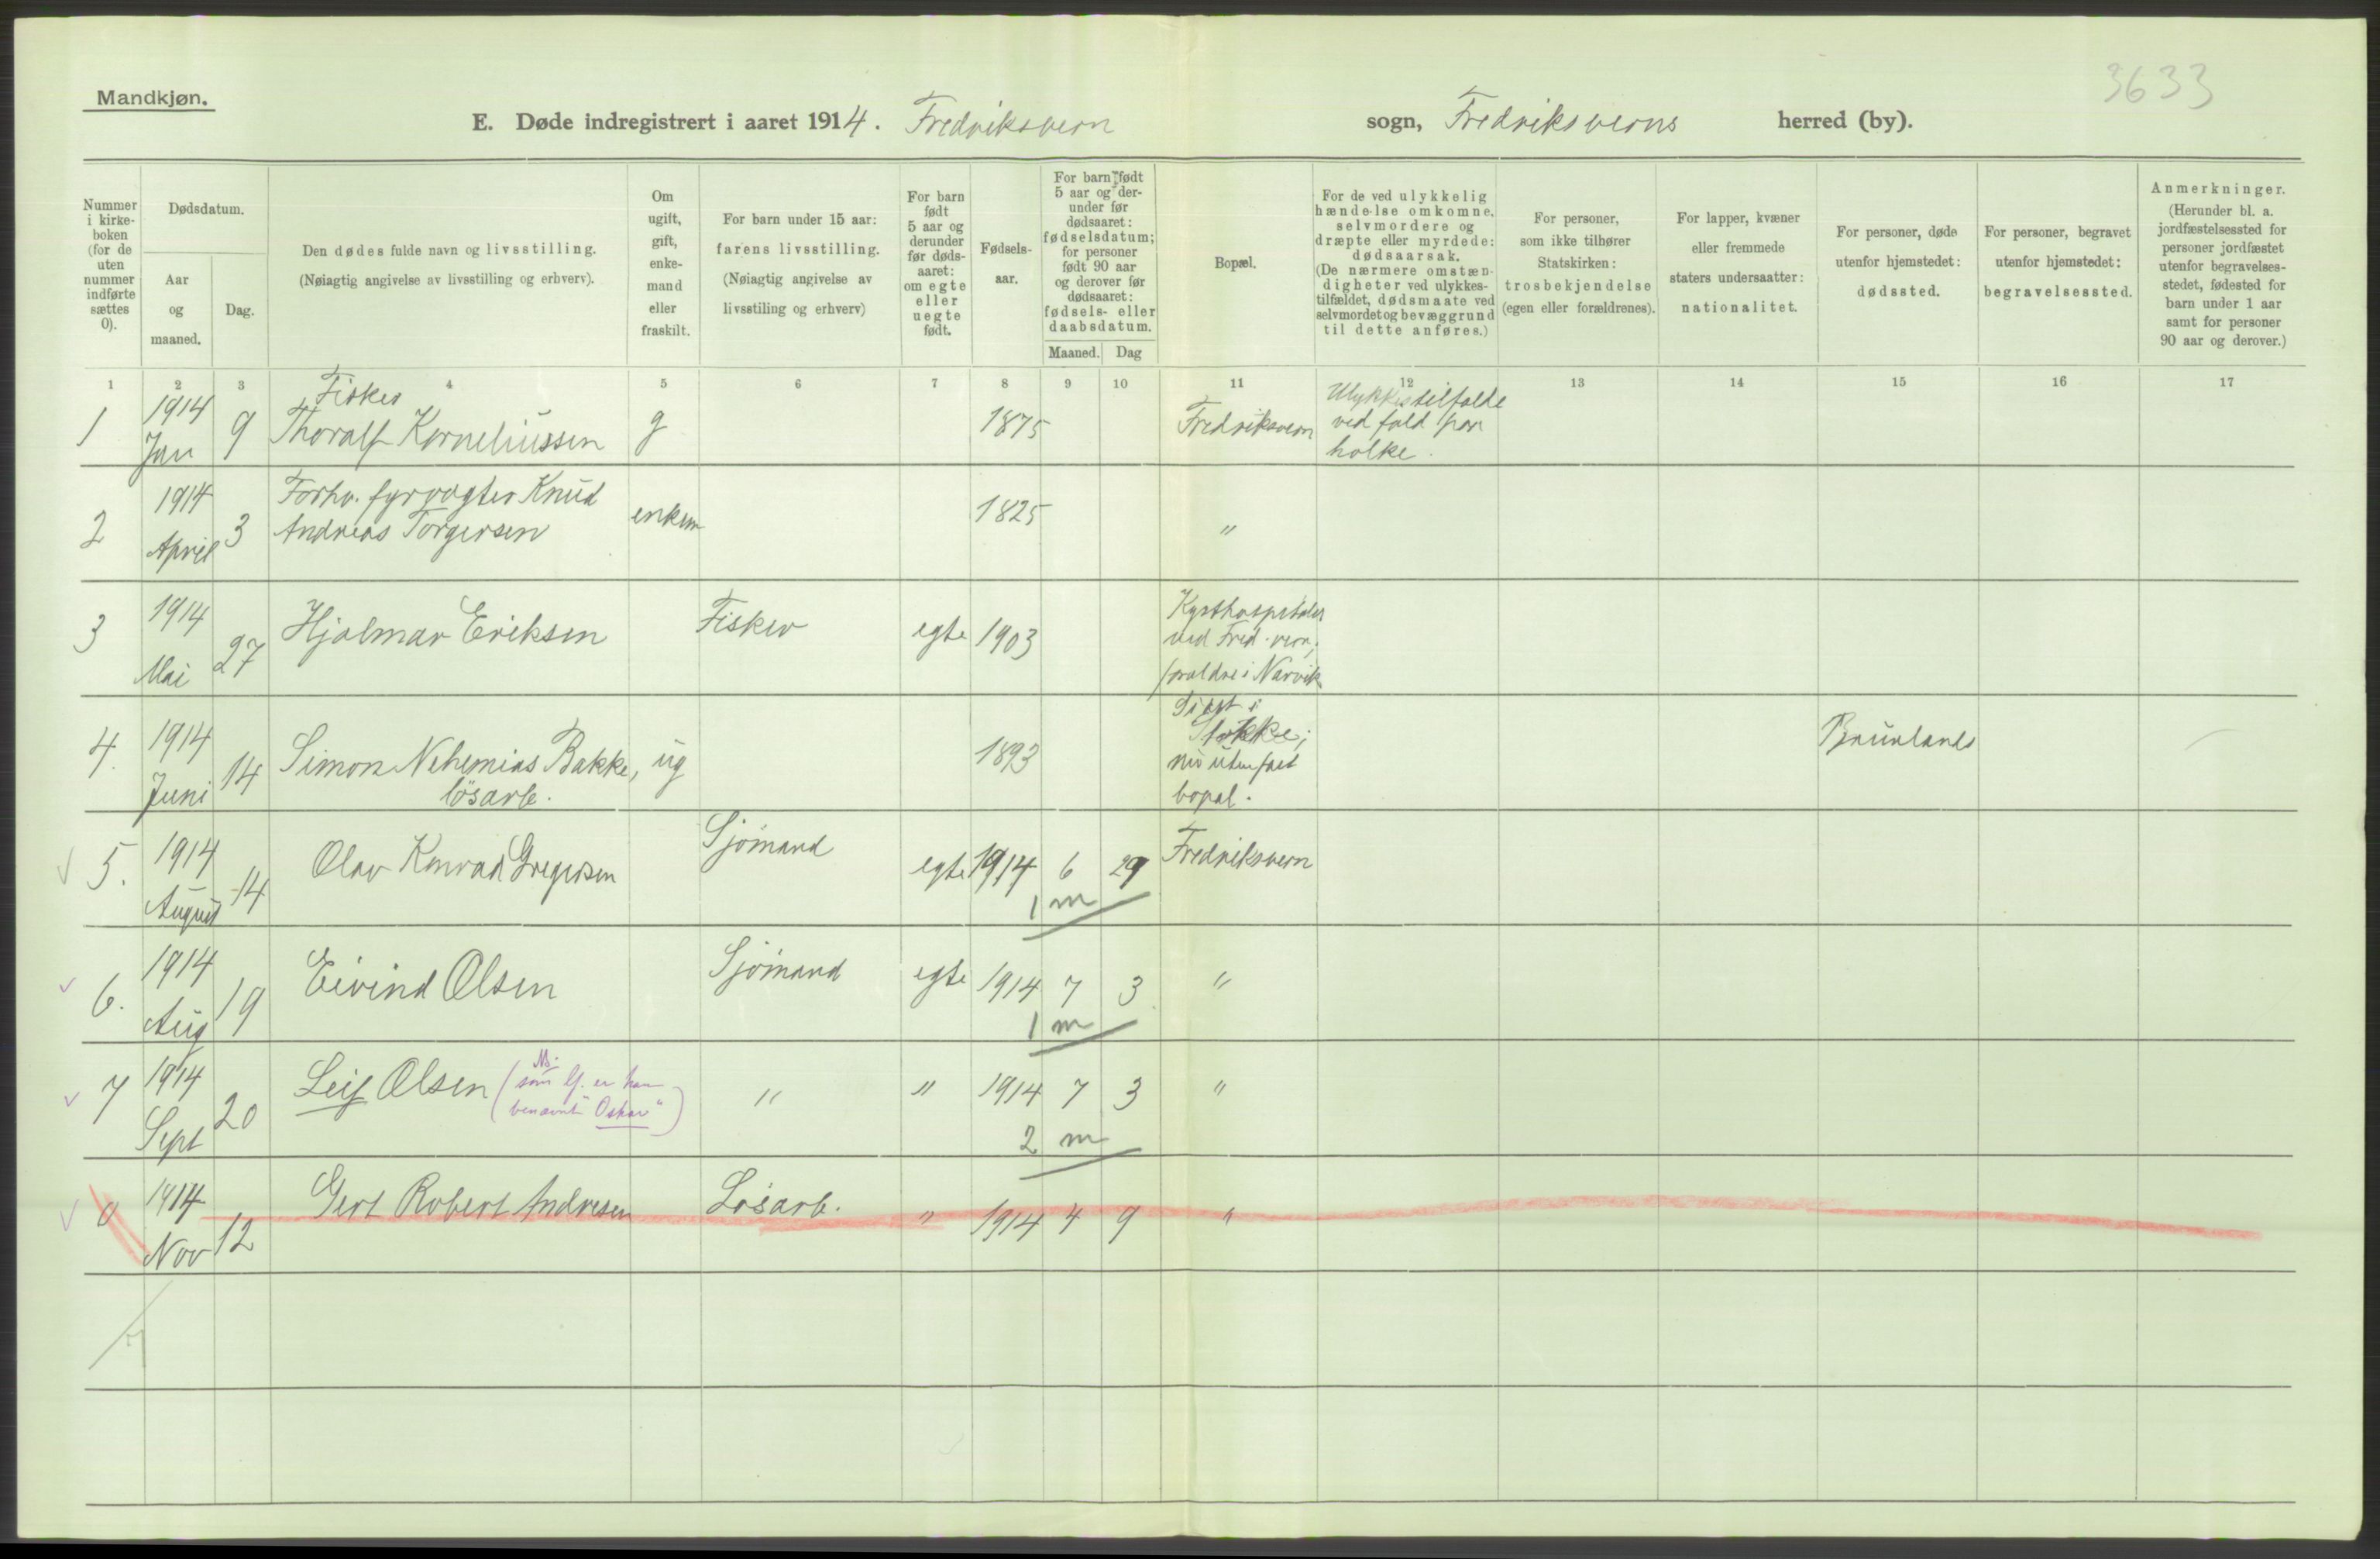 3633
Mandkjøn.
E. Døde indregistrert i aaret 1914. Fredriksvern sogn, Fredriksverns herred (by).
Nummer
i kirke-
boken
(for de
uten
nummer
indførte
sættes
0).
Dødsdatum.
Aar
og
maaned.
Dag.
Den dødes fulde navn og livsstilling.
(Nøiagtig angivelse av livsstilling og erhverv).
Om
ugift,
gift,
enke-
mand
eller
fraskilt.
For barn under 15 aar:
farens livsstilling.
(Nøiagtig angivelse av
livsstiling og erhverv)
For barn
født
5 aar og
derunder
før døds-
aaret:
om egte
eller
uegte
født.
Fødsels-
aar.
For barn født
5 aar og der-
under før
dødsaaret:
fødselsdatum;
for personer
født 90 aar
og derover før
dødsaaret:
fødsels- eller
daabsdatum.
Maaned. Dag
Bopæl.
For de ved ulykkelig
hændelse omkomne,
selvmordere og
dræpte eller myrdede:
dødsaarsak.
(De nærmere omstæn-
digheter ved ulykkes-
tilfældet, dødsmaate ved
selvmordet og bevæggrund
til dette anføres.)
For personer,
som ikke tilhører
Statskirken:
trosbekjendelse
(egen eller forældrenes).
For lapper, kvæner
eller fremmede
staters undersaatter:
nationalitet.
For personer, døde
utenfor hjemstedet:
dødssted.
For personer, begravet
utenfor hjemstedet:
begravelsessted.
Anmerkninger.
(Herunder bl. a.
jordfæstelsessted for
personer jordfæstet
utenfor begravelses-
stedet, fødested for
barn under 1 aar
samt for personer
90 aar og derover.)
1 2 3 4 5 6 7 8 9 10 11 12 13 14 15 16 17
1 1914 Jan 9
Fisker
Thoralf Korneliussen g 1875 Fredriksvern
Ulykkestilfælde
ved fald paa
holke.
2 1914 April 3
Forhv. fyrvogter Knud
Andreas Torgersen enkem 1825 "
3 1914 Mai 27 Hjalmar Eriksen Fisker egte 1903
Kysthospitalet
ved Fred.vern;
forældre i Narvik
4. 1914 Juni 14 Simon Nehemias Bakke, ug 1893
løsarb.
Sidst i
Stokke;
nu uten fast
bopæl.
Brunlanes
5. 1914 August 14 Olav Konrad Gregersen Sjömand egte 1914 6 29 Fredriksvern
1 m
6. 1914 Aug 19 Eivind Olsen Sjömand egte 1914 7 3 "
1 m
7 1914 Sept 20 Leif Olsen ( som lf. er han
benævnt "Oskar" ) " " 1914 7 3 "
2 m
0 1914 Nov 12 Gert Robert Andresen Løsarb. " 1914 4 9 "
7